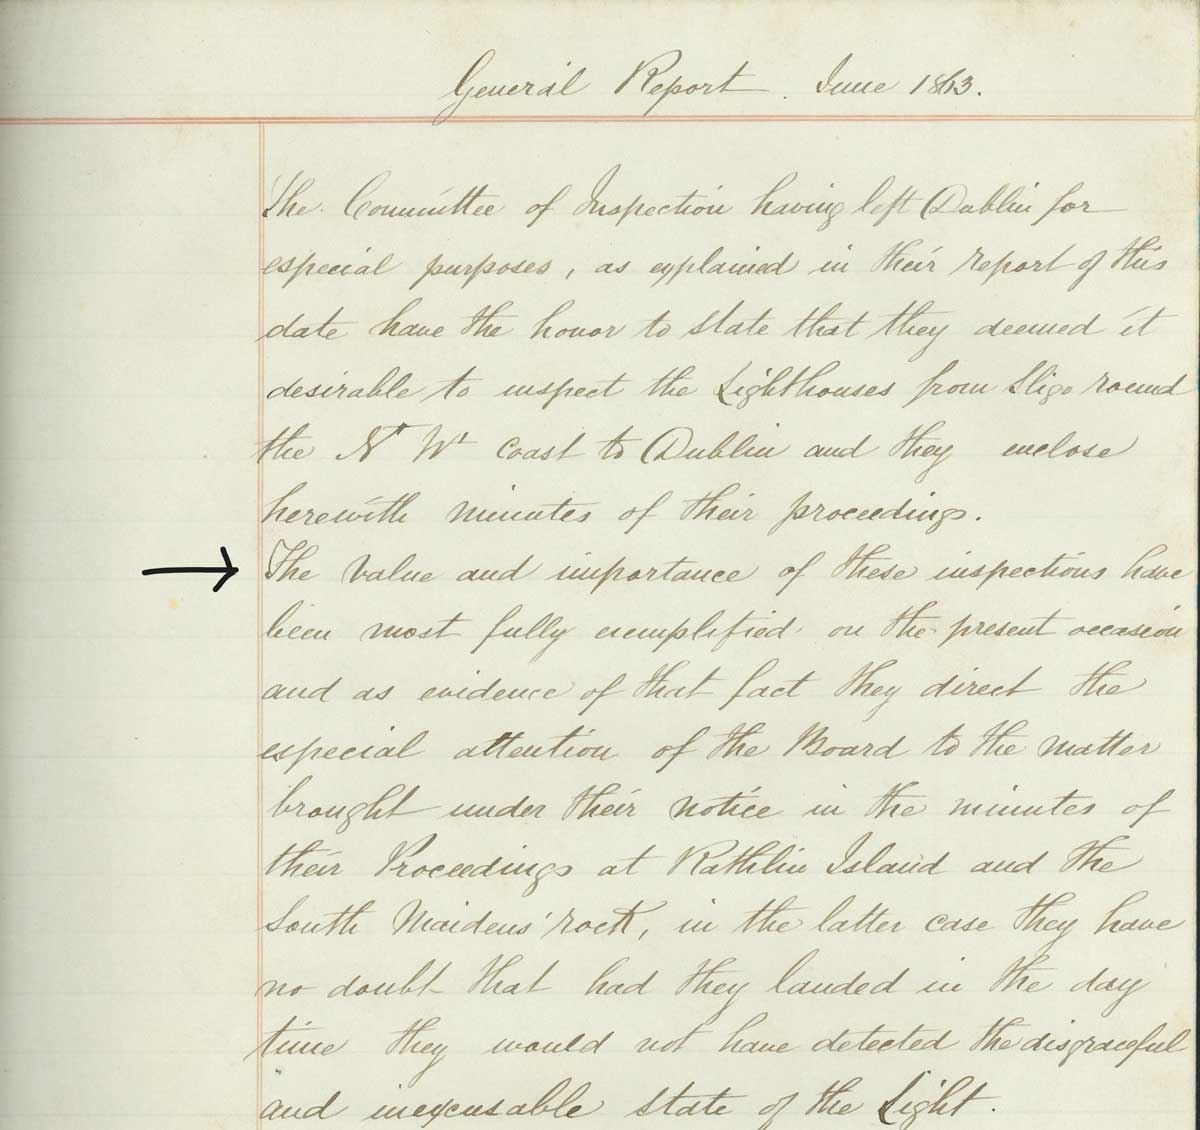 General Report. June 1863.
The Committee of Inspection having left Dublin for
especial purposes, as explained in their report of this
date have the honor to state that they deemed it
desirable to inspect the Lighthouses from Sligo round
the Nᵗ Wᵗ coast to Dublin and they enclose
herewith minutes of their proceedings.
The value and importance of these inspections have
been most fully exemplified on the present occasion
and as evidence of that fact they direct the
especial attention of the Board to the matter
brought under their notice in the minutes of
their Proceedings at Rathlin Island and the
South Maidens' rock, in the latter case they have
no doubt that had they landed in the day
time they would not have detected the disgraceful
and inexcusable state of the Light.